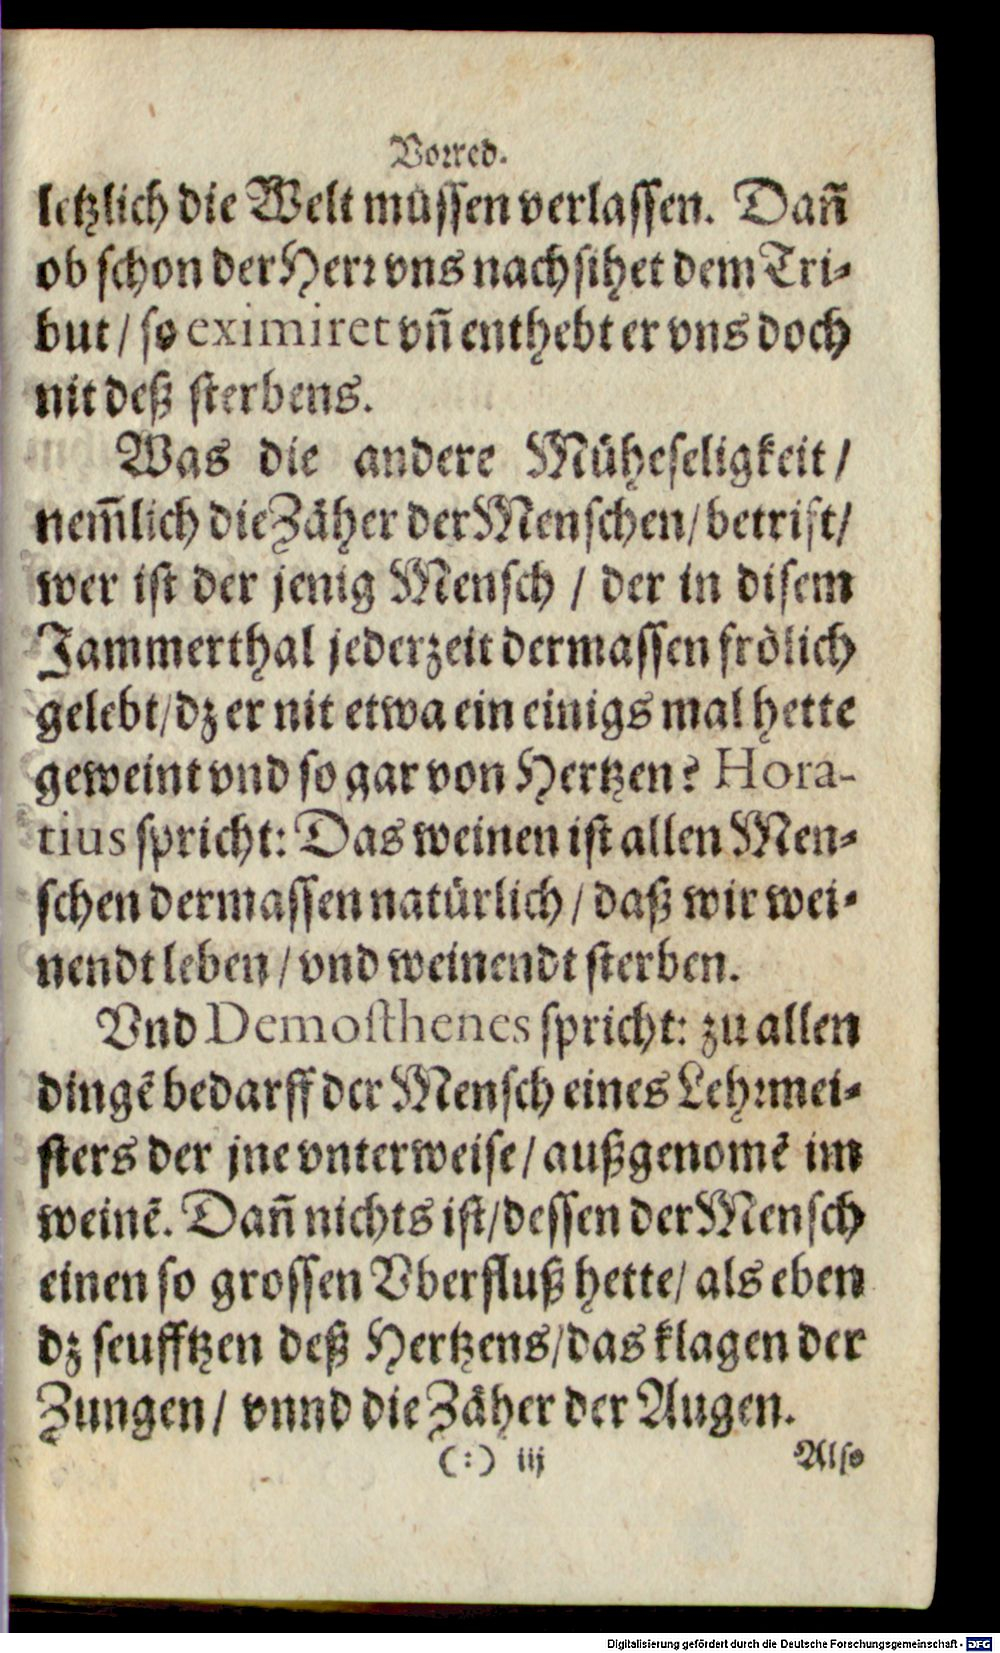 Vorred.
letzlich die Welt müssen verlassen. Dañ
ob schon der Herr vns nachsihet dem Tri-
but / so eximiret vñ enthebt er vns doch
nit deß sterbens.
Was die andere Müheseligkeit /
nem̃lich die Zäher der Menschen / betrift /
wer ist der jenig Mensch / der in disem
Jammerthal jederzeit dermassen frölich
gelebt / dz er nit etwa ein einigs mal hette
geweint vnd so gar von Hertzen? Hora-
tius spricht: Das weinen ist allen Men-
schen dermassen natürlich / daß wir wei-
nendt leben / vnd weinendt sterben.
Vnd Demosthenes spricht: zu allen
dingẽ bedarff der Mensch eines Lehrmei-
sters der jne vnterweise / außgenomẽ im
weinẽ. Dañ nichts ist / dessen der Mensch
einen so grossen Vberfluß hette / als eben
dz seufftzen deß Hertzens / das klagen der
Zungen / vnnd die Zäher der Augen.
(:) iij Also
Digitalisierung gefördert durch die Deutsche Forschungsgemeinschaft - DFG